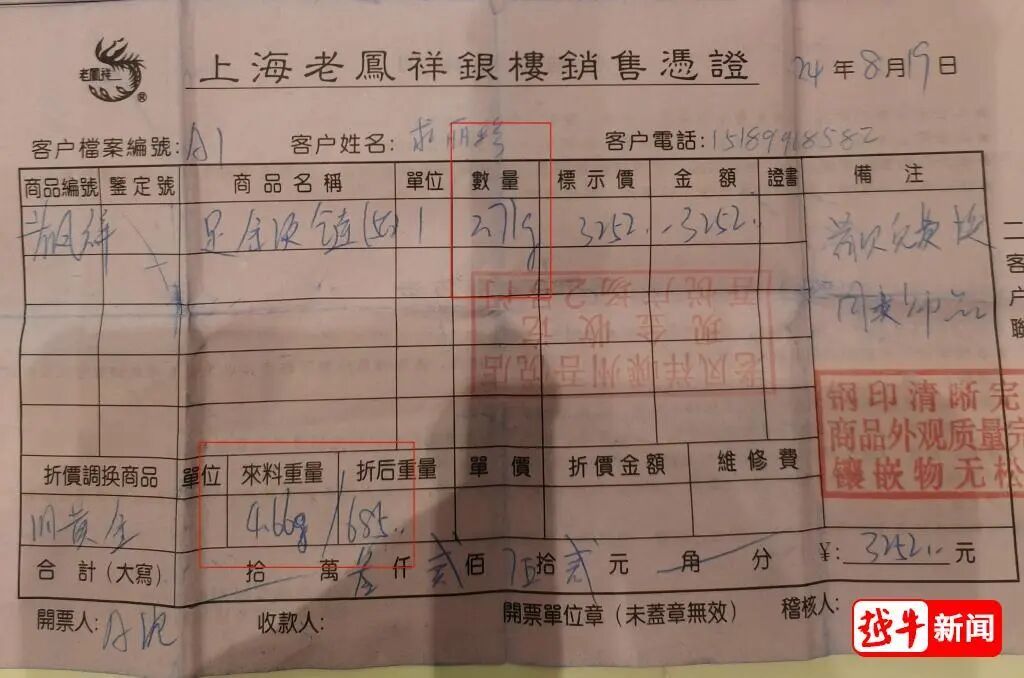 老鳳祥 ®
上海老鳳祥銀樓銷售憑證 24年8月19日
客户檔案編號:A1 客户姓名: 客户電話:15189918582
商品編號 鑒定號 商品名稱 單位 數量 標示價 金額 證書 備注
足金项链(5G) 1 2.71g 3252.- 3252.-
首次免费换
百悦广场2号门
现金收讫
老凤祥嵊州吾悦店
钢印清晰完
商品外观质量完
镶嵌物无松
二客户聯
折價調换商品 單位 來料重量 折后重量 單價 折價金額 維修費
旧黄金 4.66g/685..
合計(大寫) 拾 萬叁仟贰佰伍拾贰元 角 分 ¥:3252..元
開票人: 收款人: 開票單位章(未蓋章無效) 稽核人:
越牛新闻